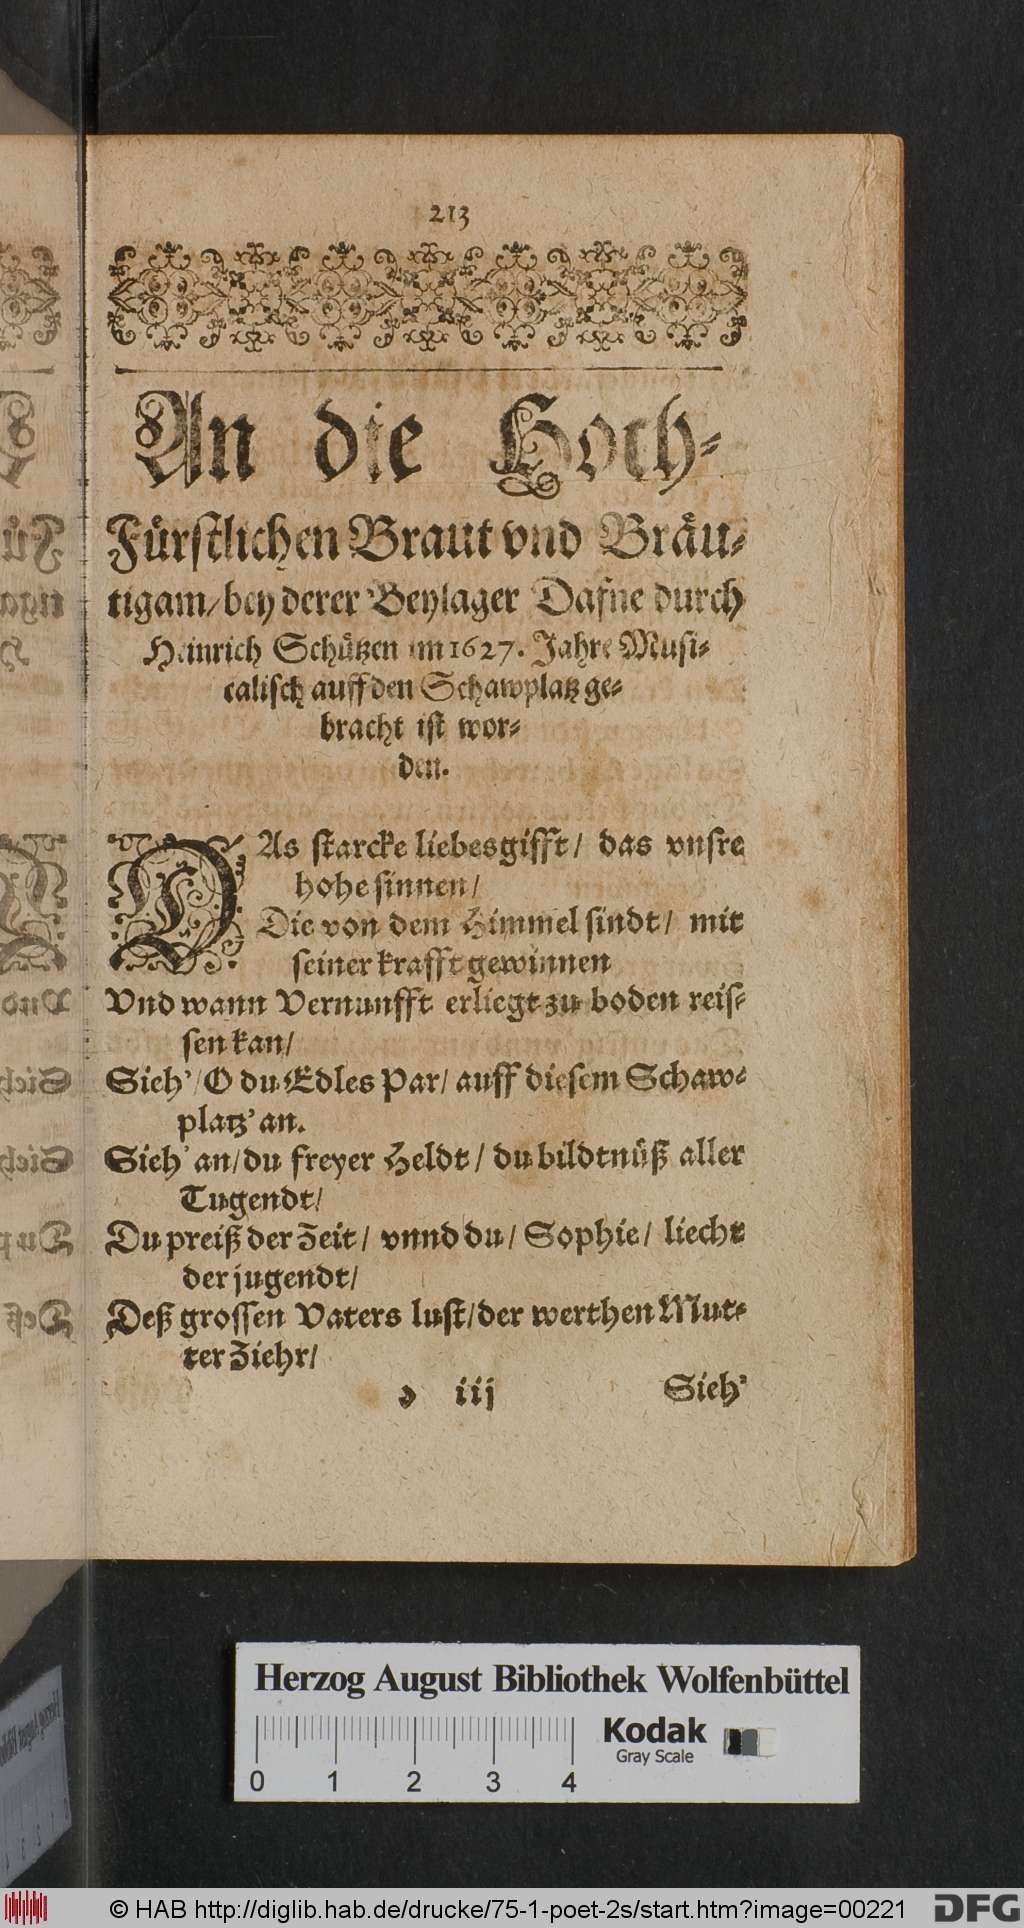 213
An die Hoch-
Fürstlichen Braut vnd Bräu-
tigam/ bey derer Beylager Dafne durch
Heinrich Schützen im 1627. Jahre Musi-
calisch auff den Schawplatz ge-
bracht ist wor-
den.
WAs starcke liebesgifft/ das vnsre
hohe sinnen/
Die von dem Himmel sindt/ mit
seiner krafft gewinnen
Vnd wann Vernunfft erliegt zu boden reis-
sen kan/
Sieh'/ O du Edles Par/ auff diesem Schaw-
platz' an.
Sieh' an/ du freyer Heldt/ du bildtnüß aller
Tugendt/
Du preiß der Zeit/ vnnd du/ Sophie/ liecht
der jugendt/
Deß grossen Vaters lust/ der werthen Mut-
ter Ziehr/
o iij
Sieh'
Herzog August Bibliothek Wolfenbüttel
Kodak
Gray Scale
0 1 2 3 4
© HAB http://diglib.hab.de/drucke/75-1-poet-2s/start.htm?image=00221
DFG